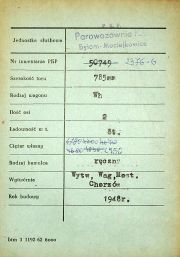 P K P
Jednostka służbowa
Parowozownia I
Bytom-Maciejkowice
Nr inwentarza PKP 50749 2376-G
Szerokość toru 785mm
Rodzaj wagonu Wh
Ilość osi 2
Ładowność w t. 8t.
Ciężar własny
4450
Rodzaj hamulca ręczny
Wytwórnia Wytw. Wag. Most.
Chorzów
Rok budowy 1948r.